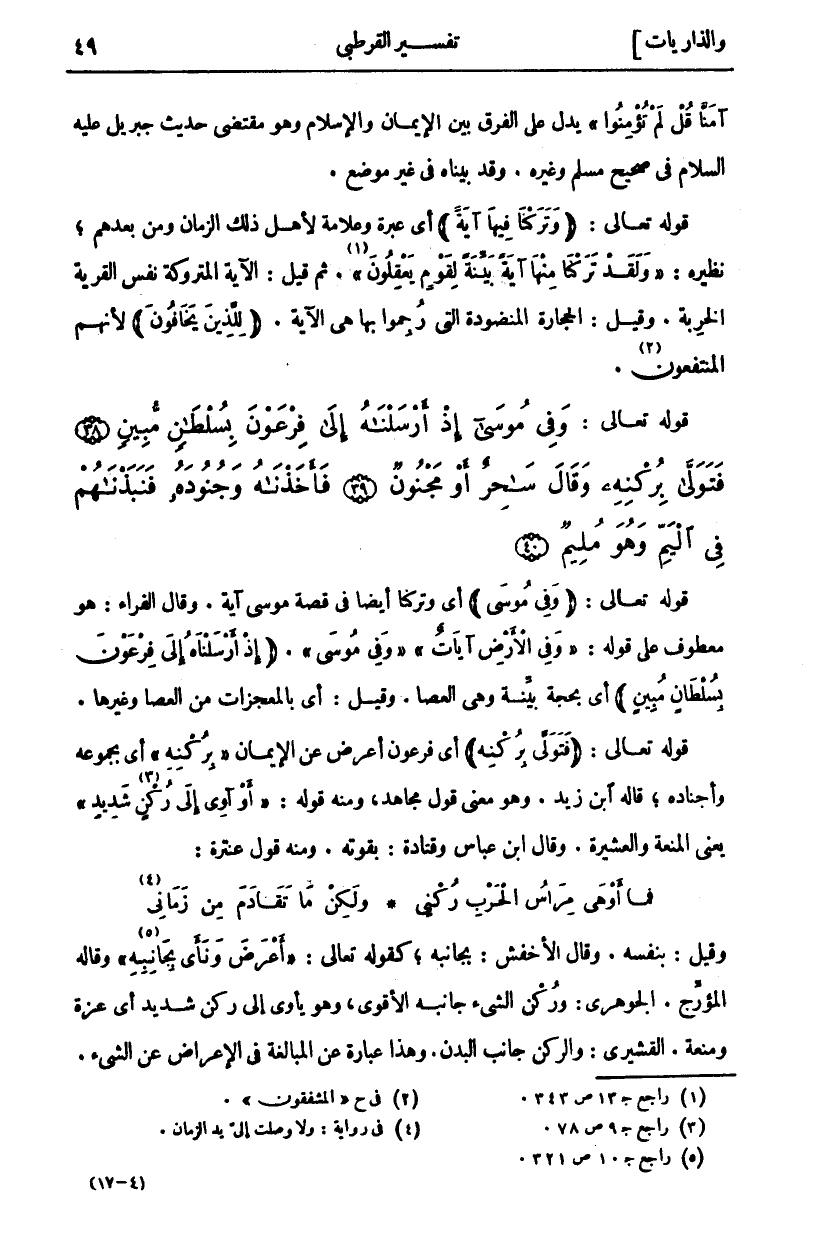 والذاريات] تفسير القرطبي ٤٩
آمَنَّا قُلْ لَمْ تُؤْمِنُوا» يدل على الفرق بين الإيمان والإسلام وهو مقتضى حديث جبريل عليه
السلام فى صحيح مسلم وغيره . وقد بيناه فى غير موضع .
قوله تعالى : ﴿ وَتَرَكْنَا فِيهَا آيَةً ﴾ أى عبرة وعلامة لأهل ذلك الزمان ومن بعدهم ؛
نظيره : « وَلَقَدْ تَرَكْنَا مِنْهَا آيَةً بَيِّنَةً لِقَوْمٍ يَعْقِلُونَ(١)» . ثم قيل : الآية المتروكة نفس القرية
الخربة . وقيل : الحجارة المنضودة التى رُجموا بها هى الآية . ﴿ لِلَّذِينَ يَخَافُونَ ﴾ لأنهم
المنتفعون(٢) .
قوله تعالى : وَفِى مُوسَىٰٓ إِذْ أَرْسَلْنَـٰهُ إِلَىٰ فِرْعَوْنَ بِسُلْطَـٰنٍ مُّبِينٍ ﴿٣٨﴾
فَتَوَلَّىٰ بِرُكْنِهِۦ وَقَالَ سَـٰحِرٌ أَوْ مَجْنُونٌ ﴿٣٩﴾ فَأَخَذْنَـٰهُ وَجُنُودَهُۥ فَنَبَذْنَـٰهُمْ
فِى ٱلْيَمِّ وَهُوَ مُلِيمٌ ﴿٤٠﴾
قوله تعالى : ﴿ وَفِى مُوسَى ﴾ أى وتركنا أيضا فى قصة موسى آية . وقال الفراء : هو
معطوف على قوله : « وَفِى الْأَرْضِ آيَاتٌ » « وَفِى مُوسَى » . ﴿ إِذْ أَرْسَلْنَاهُ إِلَى فِرْعَوْنَ
بِسُلْطَانٍ مُبِينٍ ﴾ أى بحجة بيِّنة وهى العصا . وقيل : أى بالمعجزات من العصا وغيرها .
قوله تعالى : ﴿فَتَوَلَّى بِرُكْنِهِ﴾ أى فرعون أعرض عن الإيمان « بِرُكْنِهِ » أى بجموعه
وأجناده ؛ قاله ٱبن زيد . وهو معنى قول مجاهد، ومنه قوله : « أَوْ آوِى إِلَى رُكْنٍ شَدِيدٍ(٣) »
يعنى المنعة والعشيرة . وقال ابن عباس وقتادة : بقوته . ومنه قول عنترة :
فما أَوْهَى مِرَاسُ الْحَرْبِ رُكْنِى * ولَكِنْ مَا تَقَادَمَ مِن زَمَانِى(٤)
وقيل : بنفسه . وقال الأخفش : بجانبه ؛ كقوله تعالى : «أَعْرَضَ وَنَأَى بِجَانِبِهِ(٥)» وقاله
المؤرِّج . الجوهرى : ورُكْن الشىء جانبه الأقوى، وهو يأوى إلى ركن شديد أى عزة
ومنعة . القشيرى : والركن جانب البدن. وهذا عبارة عن المبالغة فى الإعراض عن الشىء .
(١) راجع جـ ١٣ ص ٣٤٣ . (٢) فى ح « المشفقون » .
(٣) راجع جـ ٩ ص ٧٨ . (٤) فى رواية : ولا وصلت إلىّ يد الزمان .
(٥) راجع جـ ١٠ ص ٣٢١ .
(٤-١٧)